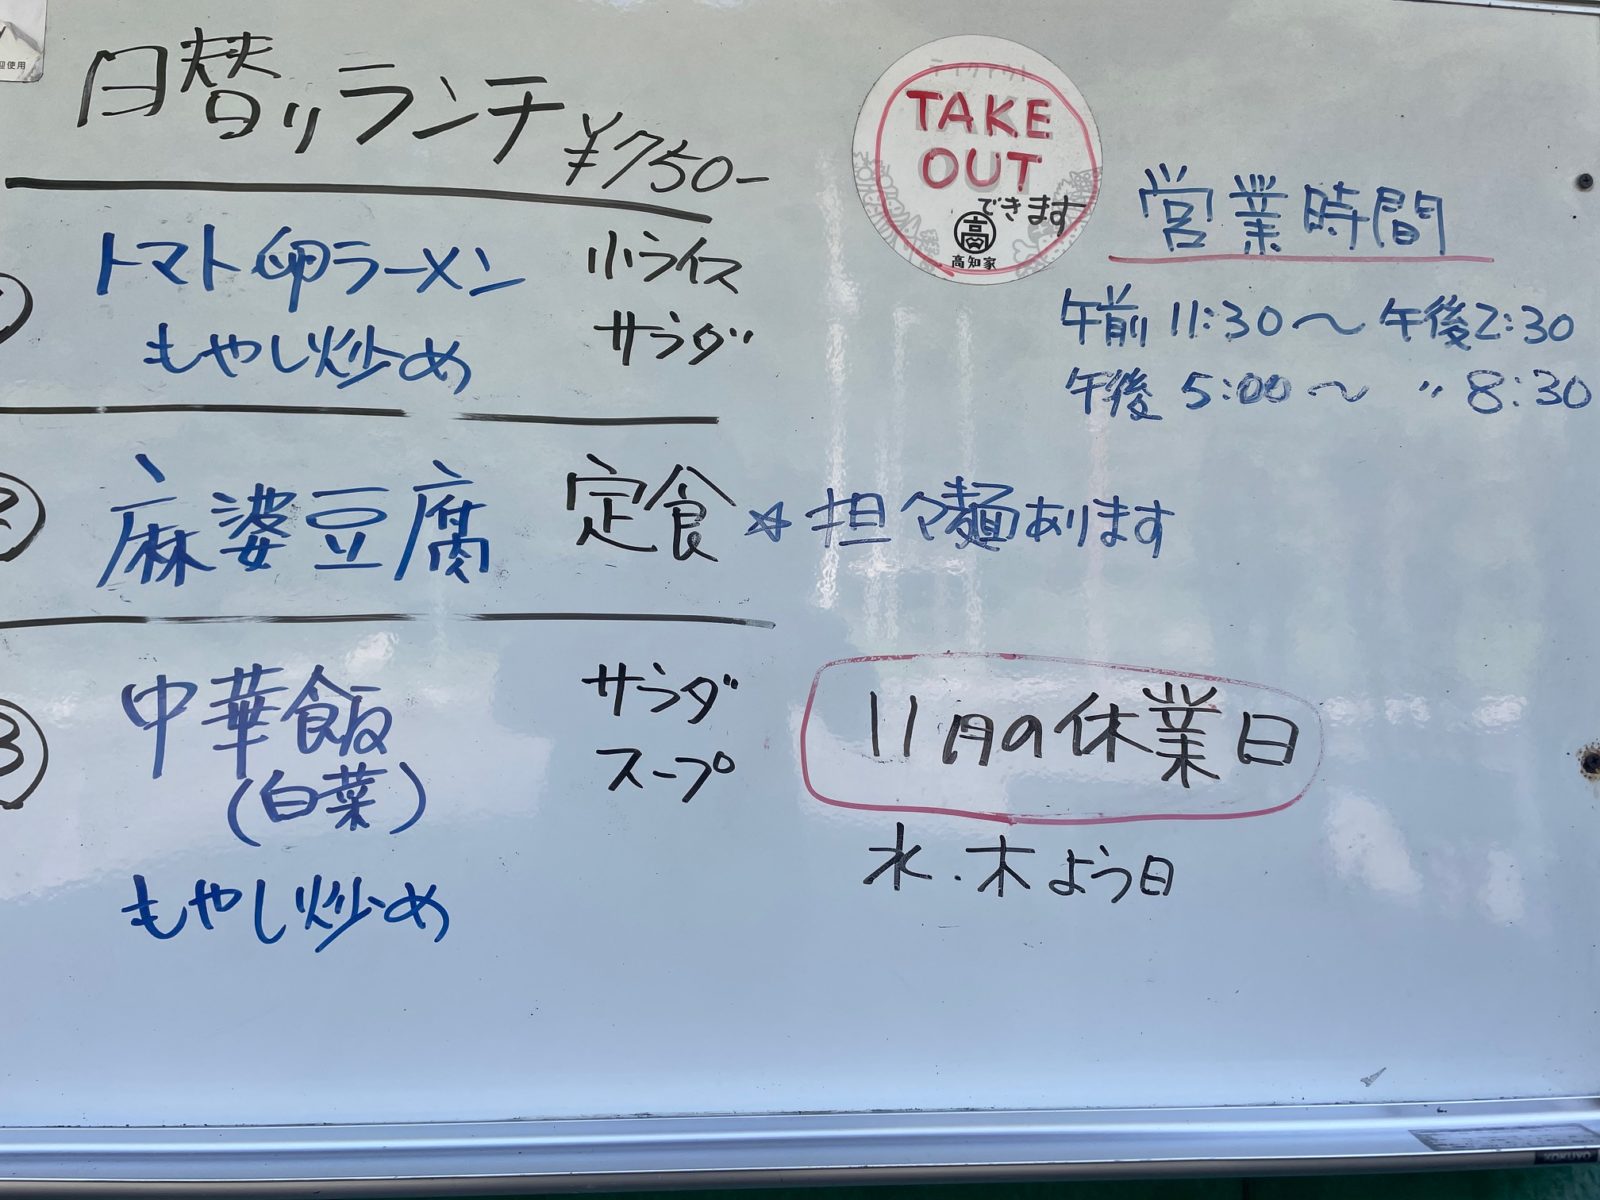 日替りランチ ¥750-
① トマト卵ラーメン 小ライス
もやし炒め サラダ
② 麻婆豆腐 定食 ☆担々麺あります
③ 中華飯 サラダ
(白菜) スープ
もやし炒め
テイクアウト
TAKE
OUT
できます
高
高知家
営業時間
午前 11:30〜午後2:30
午後 5:00〜 〃 8:30
11月の休業日
水・木よう日
迎使用
KOKUYO